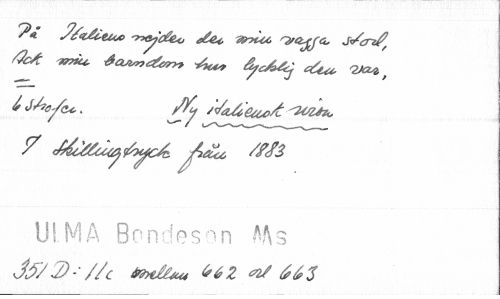 På Italiens nejder der min vagga stod,
Ack min barndom hur lycklig den var,
=
6 Strofer. Ny italiensk visa
I Skillingtryck från 1883
ULMA Bondeson Ms
351 D: 11c mellan 662 och 663